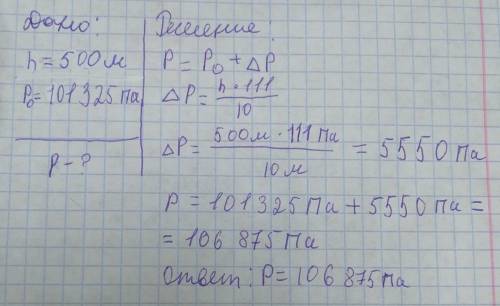 Дано:
h = 500 м
P₀ = 101 325 Па
P - ?
Решение:
P = P₀ + ΔP
ΔP = h · 111 / 10
ΔP = 500 м · 111 Па / 10 м = 5550 Па
P = 101325 Па + 5550 Па =
= 106 875 Па
Ответ: P = 106 875 Па